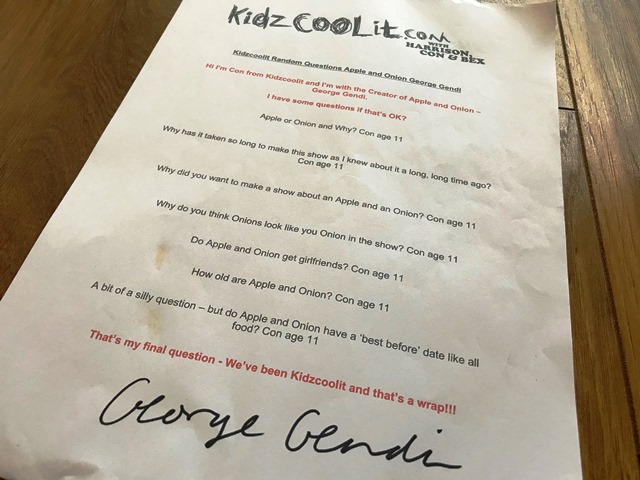 KidzCOOLit.com
WITH
HARRISON,
CON & BEX
Kidzcoolit Random Questions Apple and Onion George Gendi
Hi I'm Con from Kidzcoolit and I'm with the Creator of Apple and Onion –
George Gendi.
I have some questions if that's OK?
Apple or Onion and Why? Con age 11
Why has it taken so long to make this show as I knew about it a long, long time ago?
Con age 11
Why did you want to make a show about an Apple and an Onion? Con age 11
Why do you think Onions look like you Onion in the show? Con age 11
Do Apple and Onion get girlfriends? Con age 11
How old are Apple and Onion? Con age 11
A bit of a silly question – but do Apple and Onion have a 'best before' date like all
food? Con age 11
That's my final question - We've been Kidzcoolit and that's a wrap!!!
George Gendi